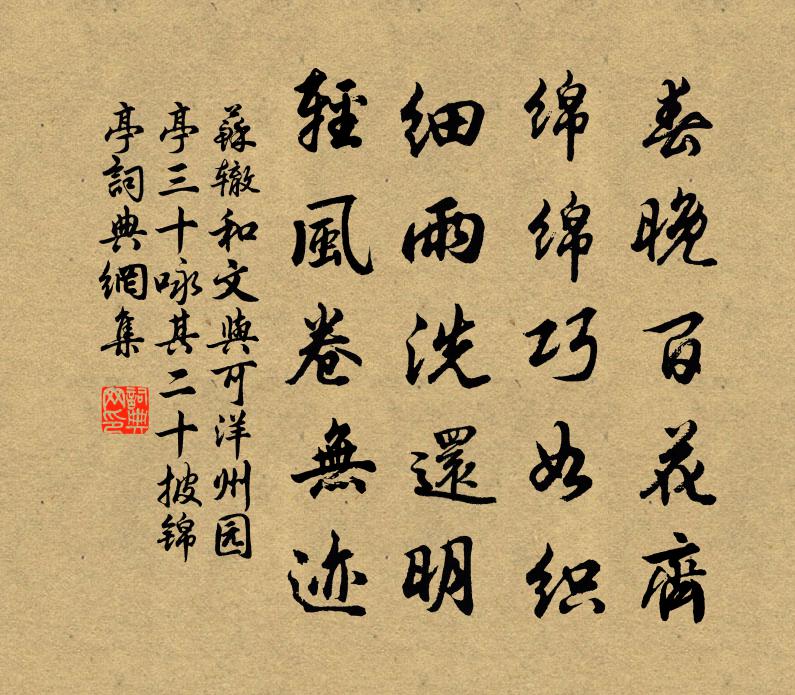 春晚百花齊
绵绵巧如织
细雨洗還明
輕風卷無迹
蘇辙和文與可洋州园
亭三十咏其二十披锦
亭詞典網集
詞典网印